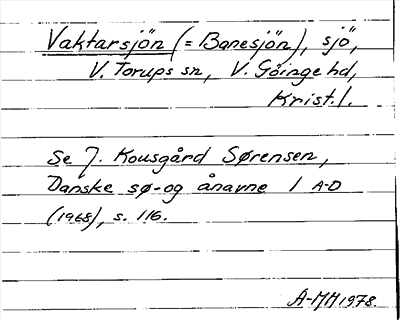 Vaktarsjön (= Banesjön), sjö,
V. Torups sn, V. Göinge hd,
Krist. l.
Se J. Kousgård Sørensen,
Danske sø- og ånavne 1 A-D
(1968), s. 116.
A-MH 1978.